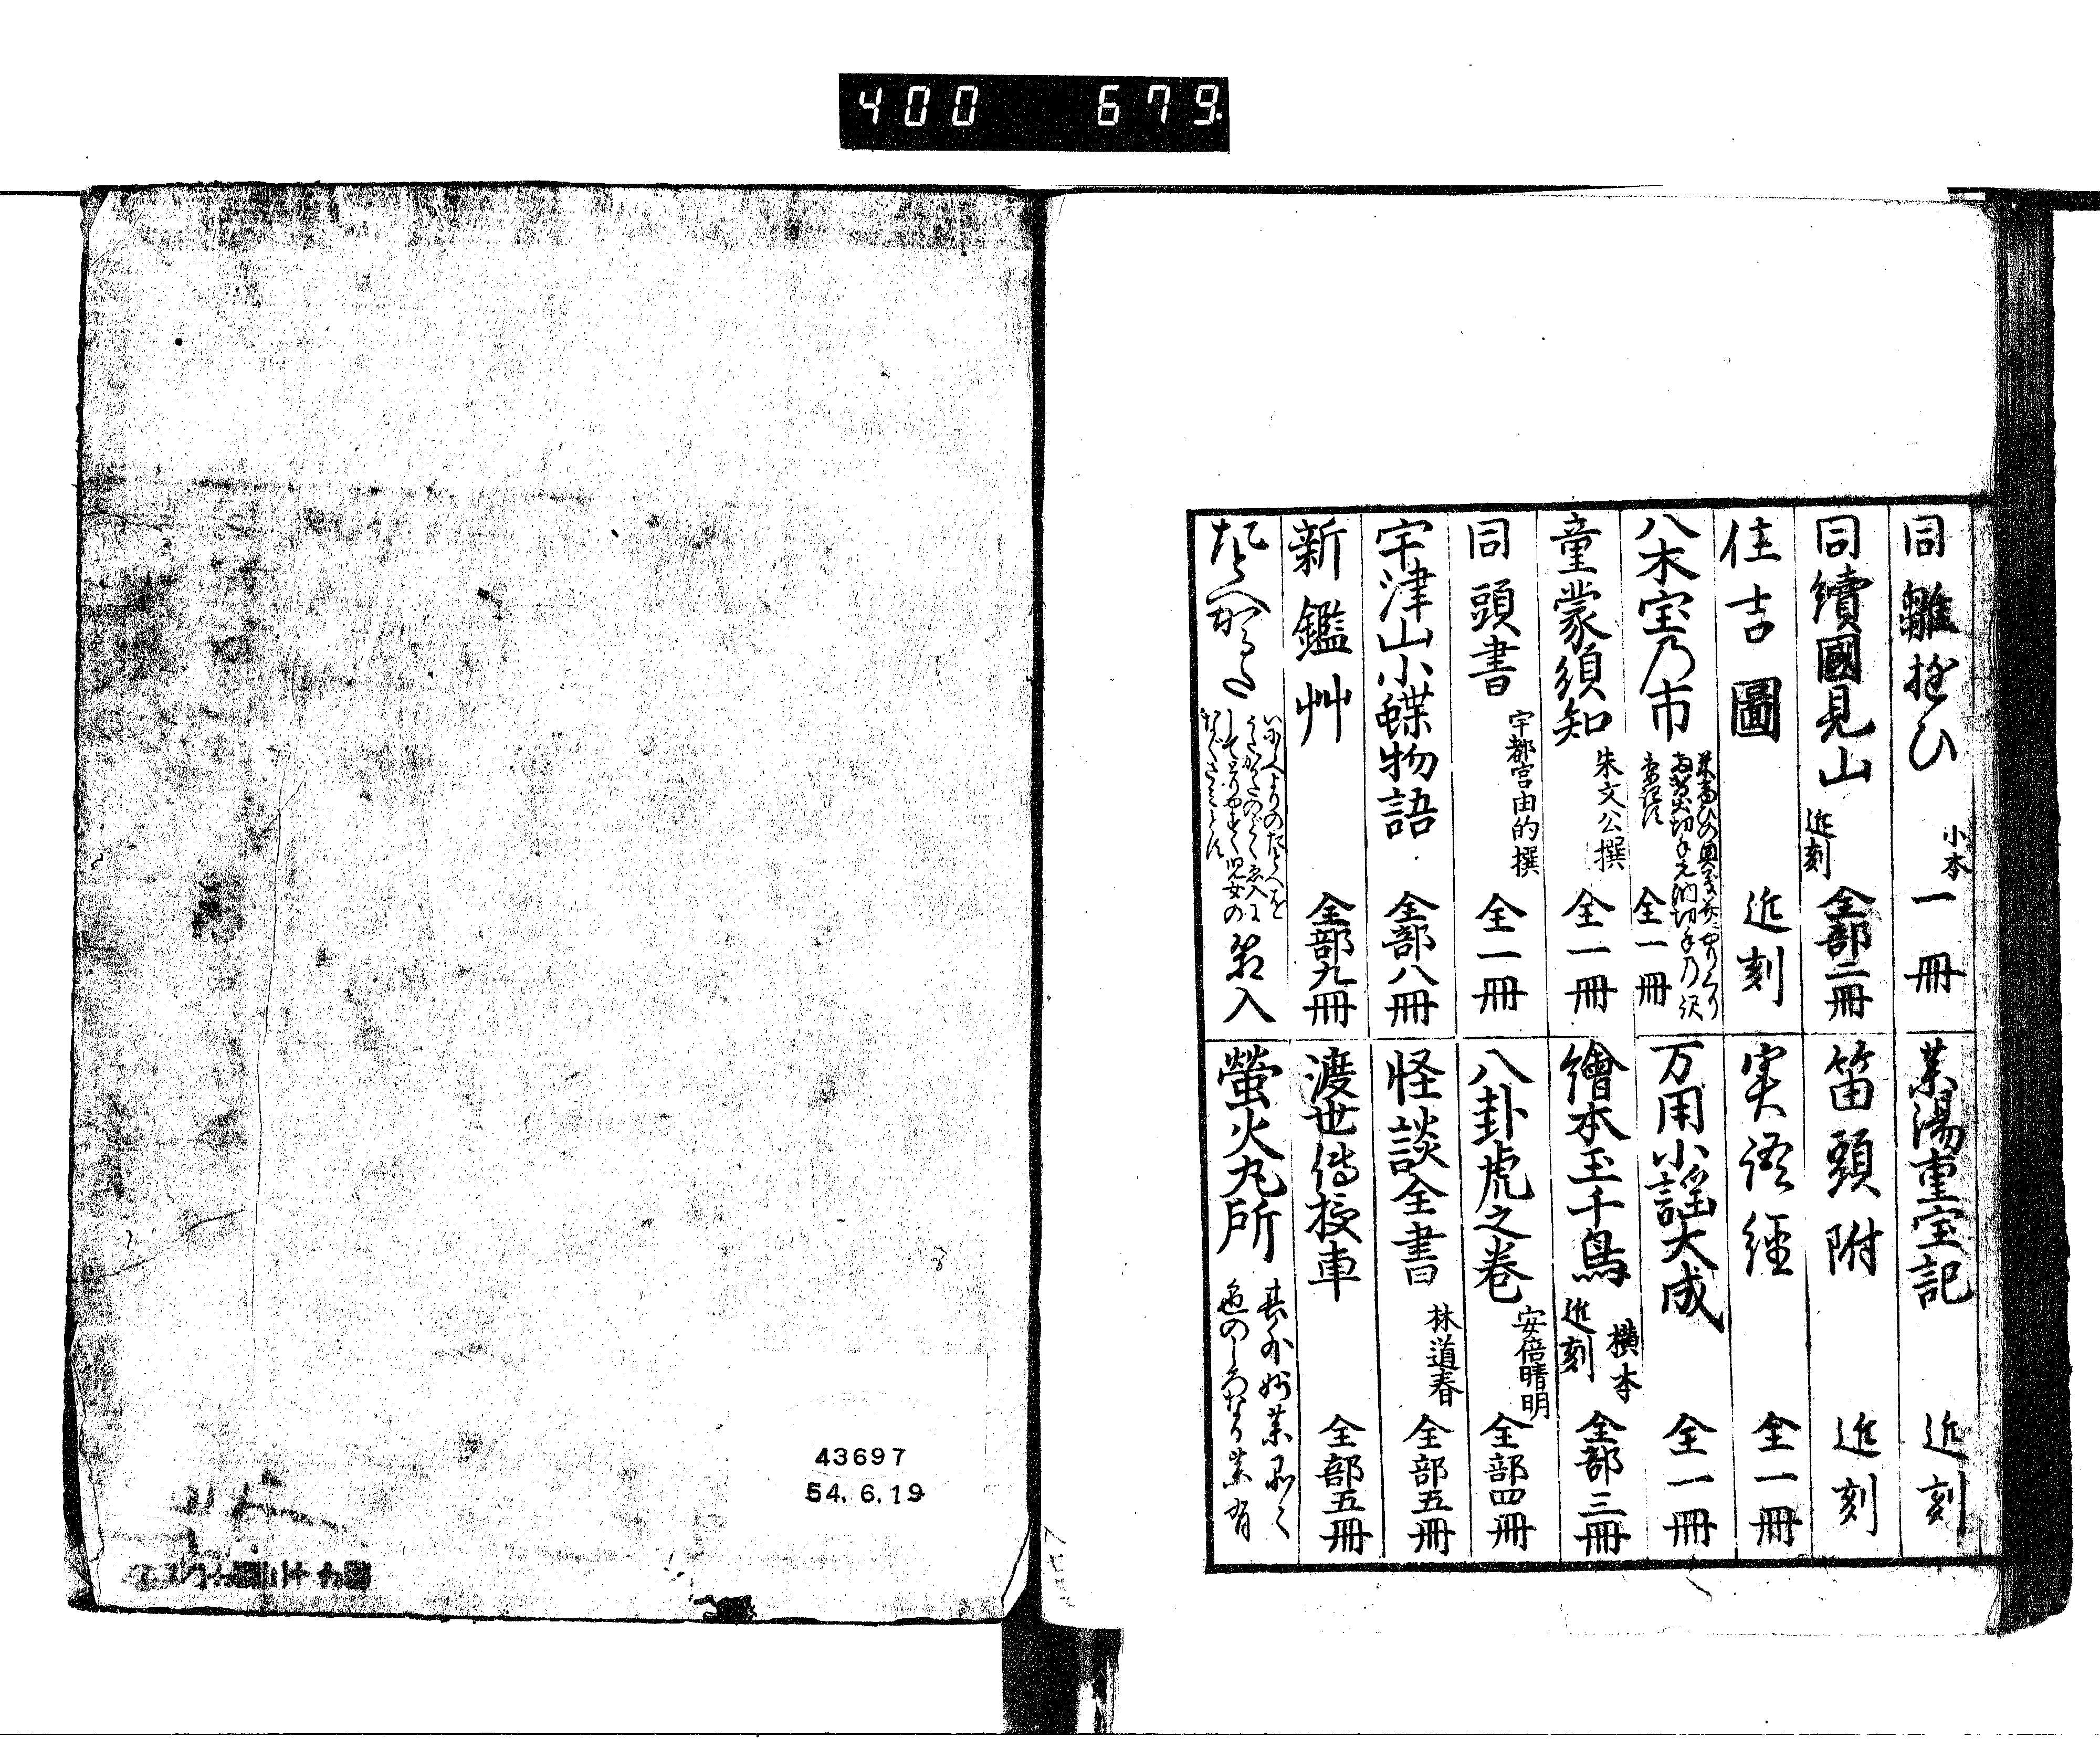 400 679.
同雛遊ひ 小本 一冊
同續國見山 近刻 全部二冊
住吉圖 近刻
八木宝乃市 全一冊
童蒙須知 朱文公撰 全一冊
同頭書 宇都宮由的撰 全一冊
宇津山小蝶物語 全部八冊
新鑑艸 全部九冊
たとへかるた
いにしへよりのたとへを
児女の
箱入
茶湯重宝記 近刻
笛頭附 近刻
実語経 全一冊
万用小謡大成 全一冊
繪本玉千鳥 横本 近刻 全部三冊
八卦虎之巻 安倍晴明 全部四冊
怪談全書 林道春 全部五冊
渡世傳授車 全部五冊
螢火丸所
43697
54.6.19